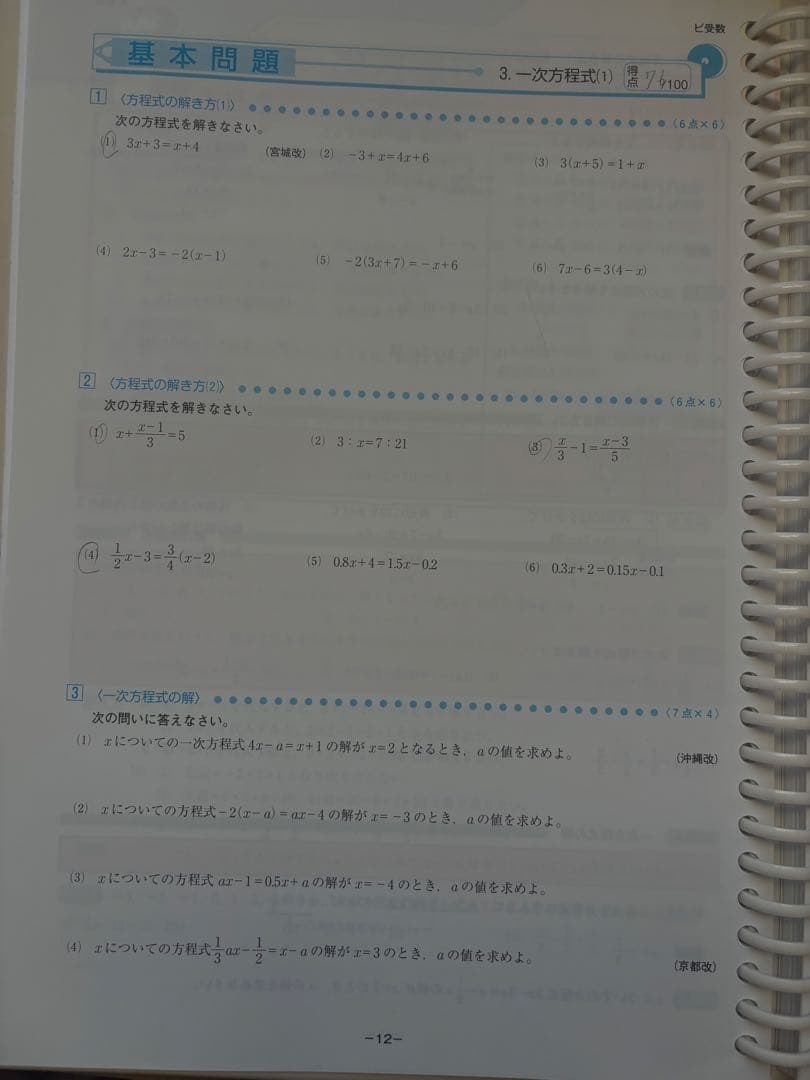 ピ受数
基本問題
3. 一次方程式(1) 得点 /100
1 〈方程式の解き方(1)〉 〈6点×6〉
次の方程式を解きなさい。
(1) 3x+3=x+4 (宮城改) (2) -3+x=4x+6 (3) 3(x+5)=1+x
(4) 2x-3=-2(x-1) (5) -2(3x+7)=-x+6 (6) 7x-6=3(4-x)
2 〈方程式の解き方(2)〉 〈6点×6〉
次の方程式を解きなさい。
(1) x+\frac{x-1}{3}=5 (2) 3:x=7:21 (3) \frac{x}{3}-1=\frac{x-3}{5}
(4) \frac{1}{2}x-3=\frac{3}{4}(x-2) (5) 0.8x+4=1.5x-0.2 (6) 0.3x+2=0.15x-0.1
3 〈一次方程式の解〉 〈7点×4〉
次の問いに答えなさい。
(1) xについての一次方程式4x-a=x+1の解がx=2となるとき,aの値を求めよ。 (沖縄改)
(2) xについての方程式-2(x-a)=ax-4の解がx=-3のとき,aの値を求めよ。
(3) xについての方程式ax-1=0.5x+aの解がx=-4のとき,aの値を求めよ。
(4) xについての方程式\frac{1}{3}ax-\frac{1}{2}=x-aの解がx=3のとき,aの値を求めよ。 (京都改)
-12-